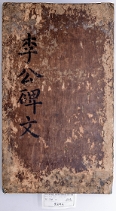 李公碑文